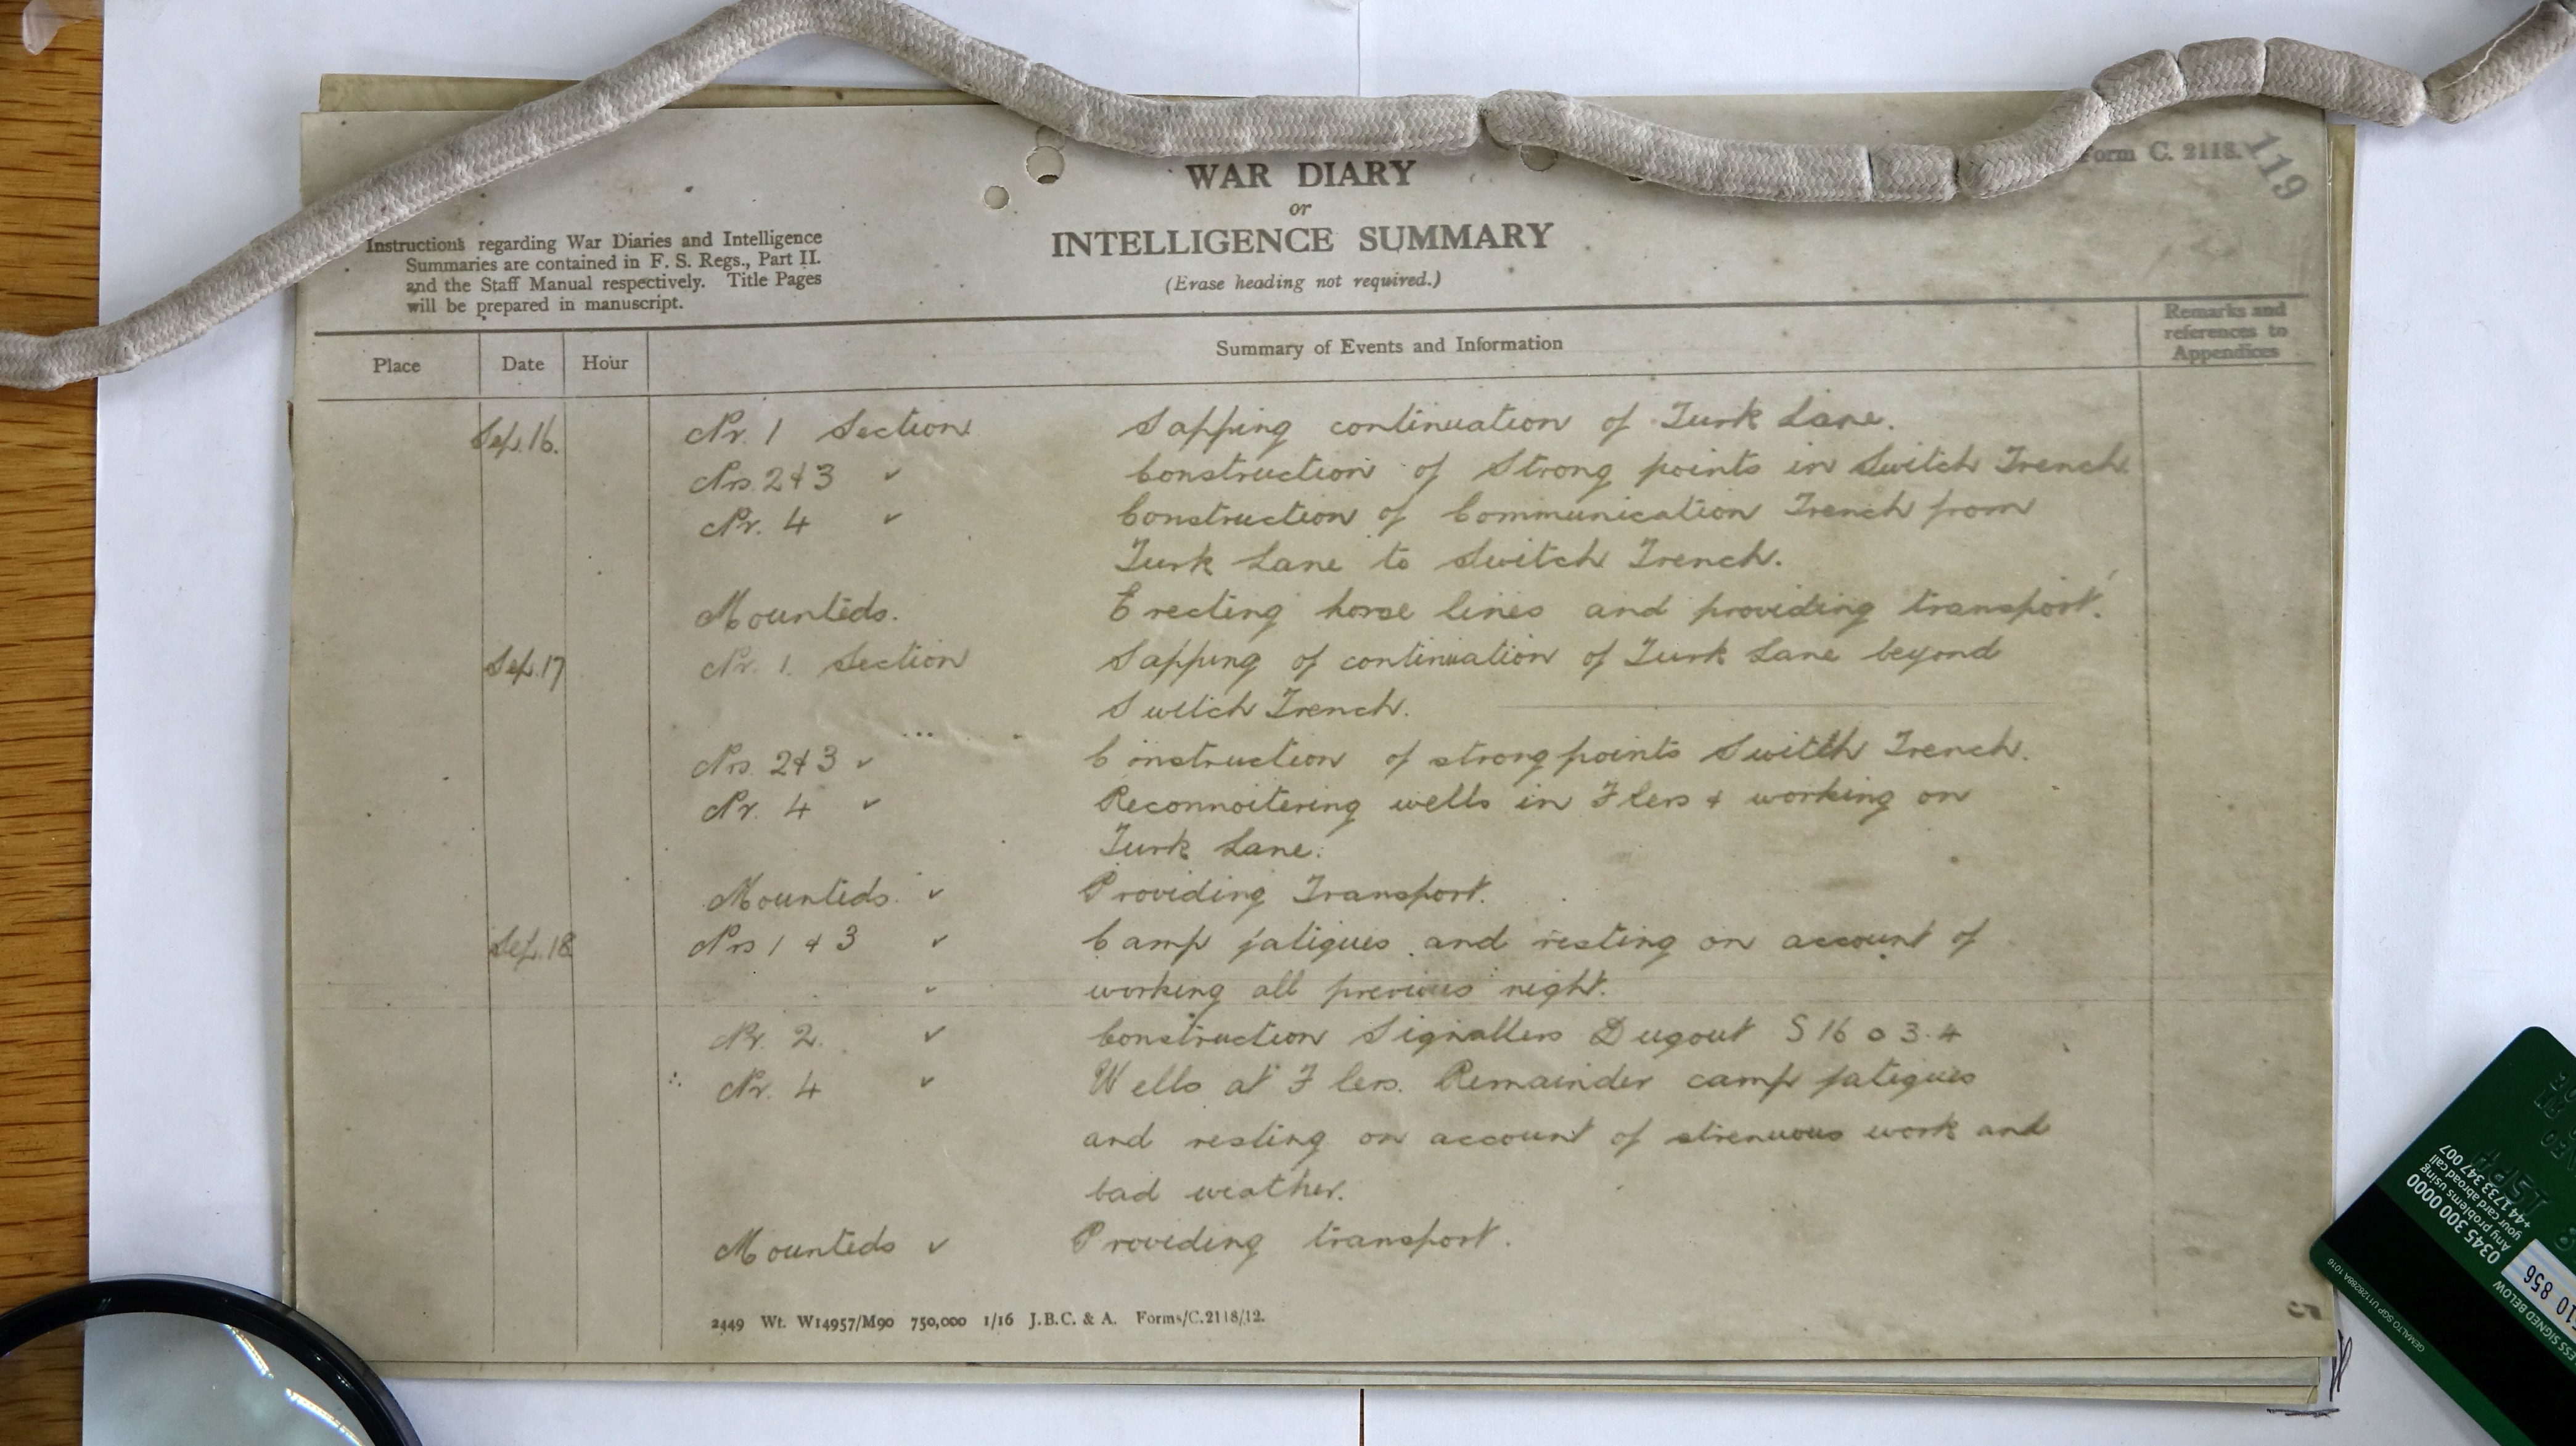 Form C. 2118.
119
WAR DIARY
or
INTELLIGENCE SUMMARY
(Erase heading not required.)
Instructions regarding War Diaries and Intelligence
Summaries are contained in F. S. Regs., Part II.
and the Staff Manual respectively. Title Pages
will be prepared in manuscript.
Place Date Hour Summary of Events and Information Remarks and references to Appendices
Sep. 16. Nr. 1 Section Sapping continuation of Turk Lane.
Nrs. 2 & 3 " Construction of Strong points in Switch Trench
Nr. 4 " Construction of Communication Trench from
Turk Lane to Switch Trench.
Mounteds. Erecting horse lines and providing transport.
Sep. 17 Nr. 1. Section Sapping of continuation of Turk Lane beyond
Switch Trench.
Nrs. 2 & 3 " Construction of strong points Switch Trench.
Nr. 4 " Reconnoitering wells in Flers & working on
Turk Lane.
Mounteds. " Providing Transport.
Sep. 18 Nrs 1 & 3 " Camp fatigues and resting on account of
" working all previous night.
Nr. 2. " Construction Signallers Dugout S 16 3.4
Nr. 4 " Wells at Flers. Remainder camp fatigues
and resting on account of strenuous work and
bad weather.
Mounteds " Providing transport.
2449 Wt. W14957/M90 750,000 1/16 J.B.C. & A. Forms/C.2118/12.
0345 300 0000
Any problems using
your card abroad call
+44 1733 347 007
GEMALTO SGP U1128288A 1016
ESS SIGNED BELOW
10 856